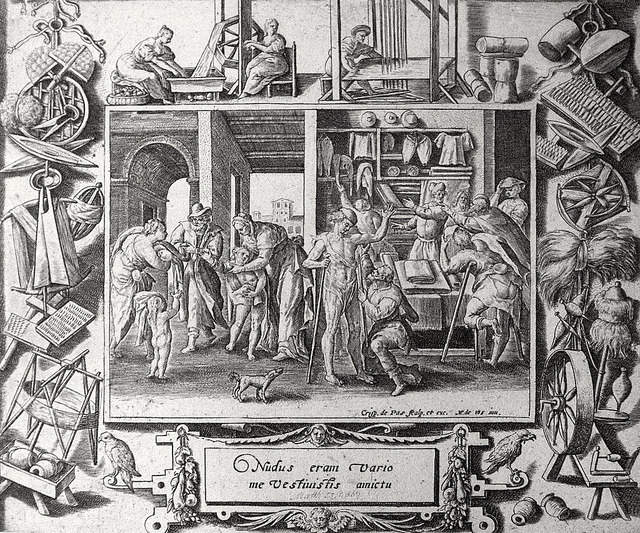 Crisp. de Pas sculp. et exc. M. de vos inu.
Nudus eram vario
me Vestiuistis amictu